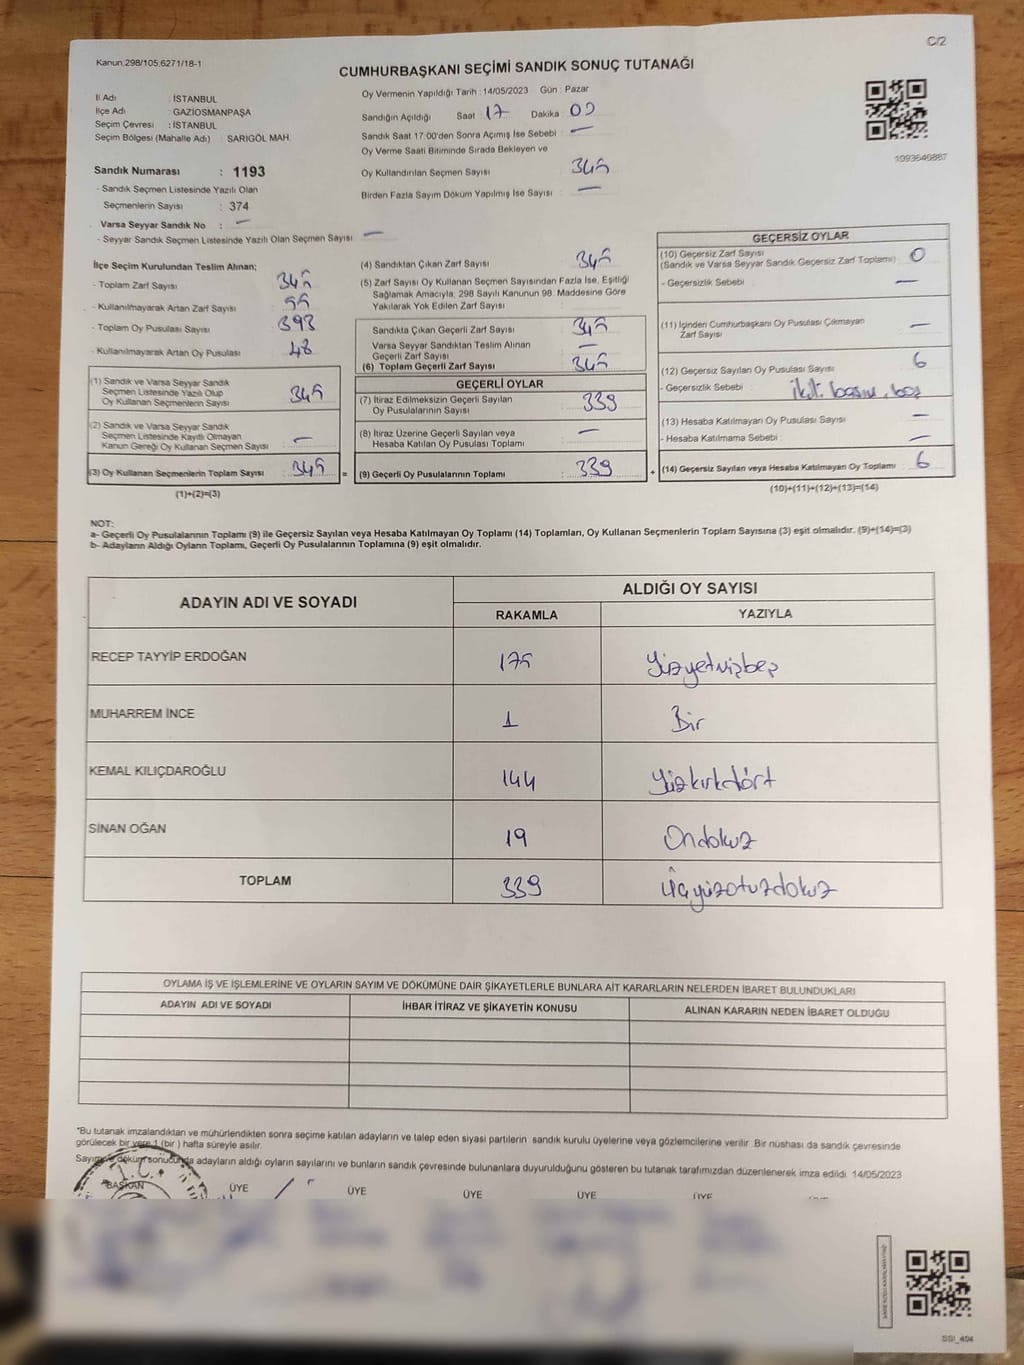 C/2
Kanun.298/105.6271/18-1
CUMHURBAŞKANI SEÇİMİ SANDIK SONUÇ TUTANAĞI
İl Adı : İSTANBUL
İlçe Adı : GAZİOSMANPAŞA
Seçim Çevresi : İSTANBUL
Seçim Bölgesi (Mahalle Adı) : SARIGÖL MAH.
Sandık Numarası : 1193
- Sandık Seçmen Listesinde Yazılı Olan
Seçmenlerin Sayısı : 374
Varsa Seyyar Sandık No : —
- Seyyar Sandık Seçmen Listesinde Yazılı Olan Seçmen Sayısı —
Oy Vermenin Yapıldığı Tarih : 14/05/2023 Gün : Pazar
Sandığın Açıldığı Saat : 17 Dakika : 00
Sandık Saat 17:00'den Sonra Açımış İse Sebebi : —
Oy Verme Saati Bitiminde Sırada Bekleyen ve
Oy Kullandırılan Seçmen Sayısı : 345
Birden Fazla Sayım Döküm Yapılmış İse Sayısı : —
1093646887
İlçe Seçim Kurulundan Teslim Alınan;
- Toplam Zarf Sayısı : 345
- Kullanılmayarak Artan Zarf Sayısı : 55
- Toplam Oy Pusulası Sayısı : 393
- Kullanılmayarak Artan Oy Pusulası : 48
(1) Sandık ve Varsa Seyyar Sandık
Seçmen Listesinde Yazılı Olup
Oy Kullanan Seçmenlerin Sayısı : 345
(2) Sandık ve Varsa Seyyar Sandık
Seçmen Listesinde Kayıtlı Olmayan
Kanun Gereği Oy Kullanan Seçmen Sayısı : —
(3) Oy Kullanan Seçmenlerin Toplam Sayısı : 345 =
(1)+(2)=(3)
(4) Sandıktan Çıkan Zarf Sayısı : 345
(5) Zarf Sayısı Oy Kullanan Seçmen Sayısından Fazla İse, Eşitliği
Sağlamak Amacıyla, 298 Sayılı Kanunun 98. Maddesine Göre
Yakılarak Yok Edilen Zarf Sayısı :
Sandıkta Çıkan Geçerli Zarf Sayısı : 345
Varsa Seyyar Sandıktan Teslim Alınan
Geçerli Zarf Sayısı : —
(6) Toplam Geçerli Zarf Sayısı : 345
GEÇERLİ OYLAR
(7) İtiraz Edilmeksizin Geçerli Sayılan
Oy Pusulalarının Sayısı : 339
(8) İtiraz Üzerine Geçerli Sayılan veya
Hesaba Katılan Oy Pusulası Toplamı : —
(9) Geçerli Oy Pusulalarının Toplamı : 339 +
GEÇERSİZ OYLAR
(10) Geçersiz Zarf Sayısı
(Sandık ve Varsa Seyyar Sandık Geçersiz Zarf Toplamı) : 0
- Geçersizlik Sebebi : —
(11) İçinden Cumhurbaşkanı Oy Pusulası Çıkmayan
Zarf Sayısı : —
(12) Geçersiz Sayılan Oy Pusulası Sayısı : 6
- Geçersizlik Sebebi : boş
(13) Hesaba Katılmayan Oy Pusulası Sayısı : —
- Hesaba Katılmama Sebebi : —
(14) Geçersiz Sayılan veya Hesaba Katılmayan Oy Toplamı : 6
(10)+(11)+(12)+(13)=(14)
NOT:
a- Geçerli Oy Pusulalarının Toplamı (9) ile Geçersiz Sayılan veya Hesaba Katılmayan Oy Toplamı (14) Toplamları, Oy Kullanan Seçmenlerin Toplam Sayısına (3) eşit olmalıdır. (9)+(14)=(3)
b- Adayların Aldığı Oyların Toplamı, Geçerli Oy Pusulalarının Toplamına (9) eşit olmalıdır.
ADAYIN ADI VE SOYADI ALDIĞI OY SAYISI
RAKAMLA YAZIYLA
RECEP TAYYİP ERDOĞAN 175 Yüzyetmişbeş
MUHARREM İNCE 1 Bir
KEMAL KILIÇDAROĞLU 144 Yüzkırkdört
SİNAN OĞAN 19 Ondokuz
TOPLAM 339 Üçyüzotuzdokuz
OYLAMA İŞ VE İŞLEMLERİNE VE OYLARIN SAYIM VE DÖKÜMÜNE DAİR ŞİKAYETLERLE BUNLARA AİT KARARLARIN NELERDEN İBARET BULUNDUKLARI
ADAYIN ADI VE SOYADI İHBAR İTİRAZ VE ŞİKAYETİN KONUSU ALINAN KARARIN NEDEN İBARET OLDUĞU
*Bu tutanak imzalandıktan ve mühürlendikten sonra seçime katılan adayların ve talep eden siyasi partilerin sandık kurulu üyelerine veya gözlemcilerine verilir. Bir nüshası da sandık çevresinde
görülecek bir yere 1 (bir ) hafta süreyle asılır.
Sayım ve döküm sonucunda adayların aldığı oyların sayılarını ve bunların sandık çevresinde bulunanlara duyurulduğunu gösteren bu tutanak tarafımızdan düzenlenerek imza edildi. 14/05/2023
T.C.
BAŞKAN ÜYE ÜYE ÜYE ÜYE ÜYE
SSI_404